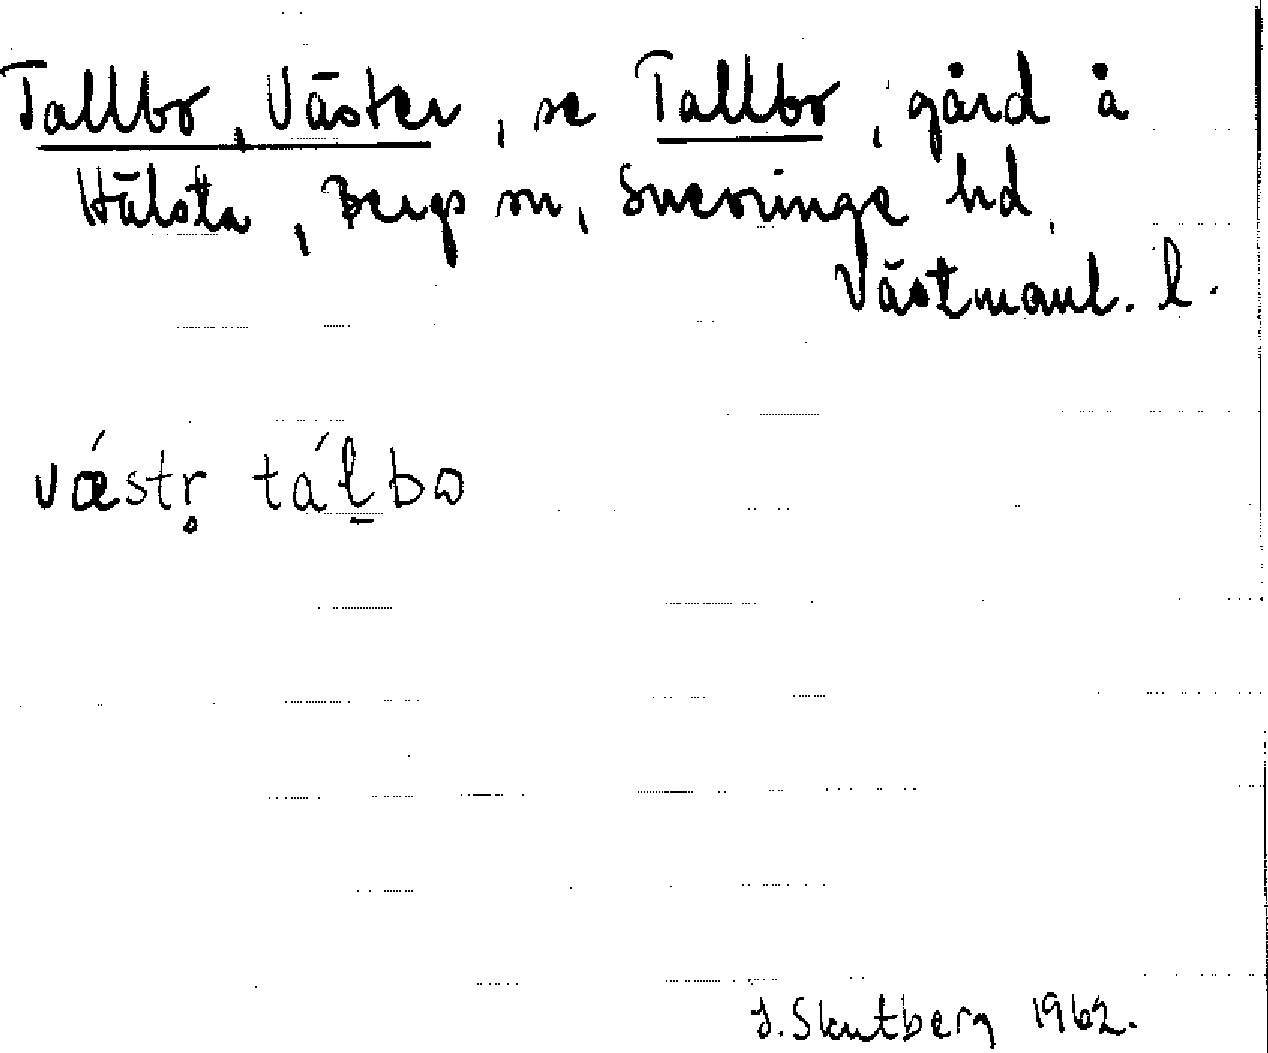 Tallbo, Väster, se Tallbo, gård å
Hälsta, Bergs sn, Snevringe hd,
Västmanl. l.
västr̥ tál̠bo
J. Skutberg 1962.